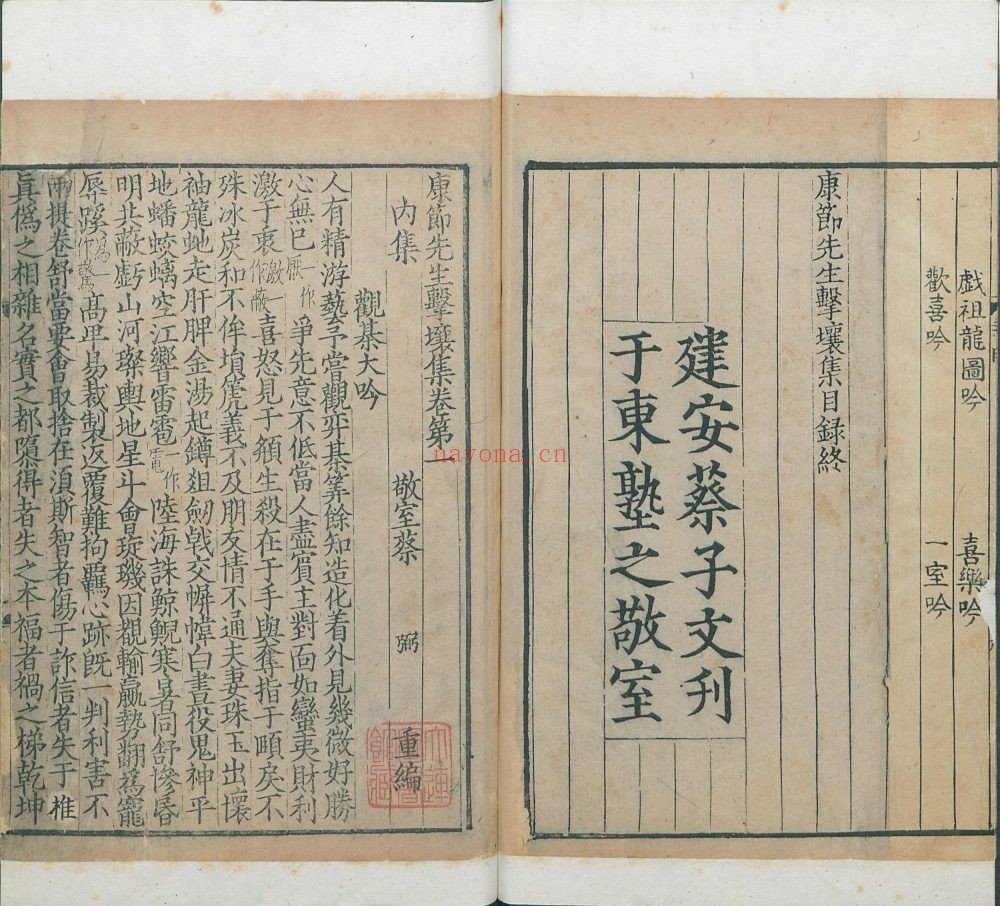 戲祖龍圖吟 喜樂吟
歡喜吟 一室吟
康節先生擊壤集目錄終
建安蔡子文刊
于東塾之敬室
康節先生擊壤集卷第一
內集 敬室蔡 弼 重編
觀棊大吟
人有精游藝予嘗觀弈棊筭餘知造化着外見幾微好勝
心無已一作厭爭先意不低當人盡賓主對面如蠻夷財利
激于衷激一作蔽喜怒見于頯生殺在于手與奪指于頤戾不
殊冰炭和不侔塤箎義不及朋友情不通夫妻珠玉出壞
袖龍虵走肝脾金湯起鐏俎劒戟交幈幃白晝役鬼神平
地蟠蛟螭空江響雷雹一作電陸海誅鯨鯢寒暑同舒慘昏
明共蔽虧山河璨輿地星斗會琁璣因覩輸贏勢翻爲寵
辱蹊爲一作驚高卑易裁製返覆難拘羈心跡旣一判利害不
兩提卷舒當要會取捨在須斯智者傷于詐信者失于椎
眞僞之相雜名實之都隳得者失之本福者禍之梯乾坤
nayona.cn